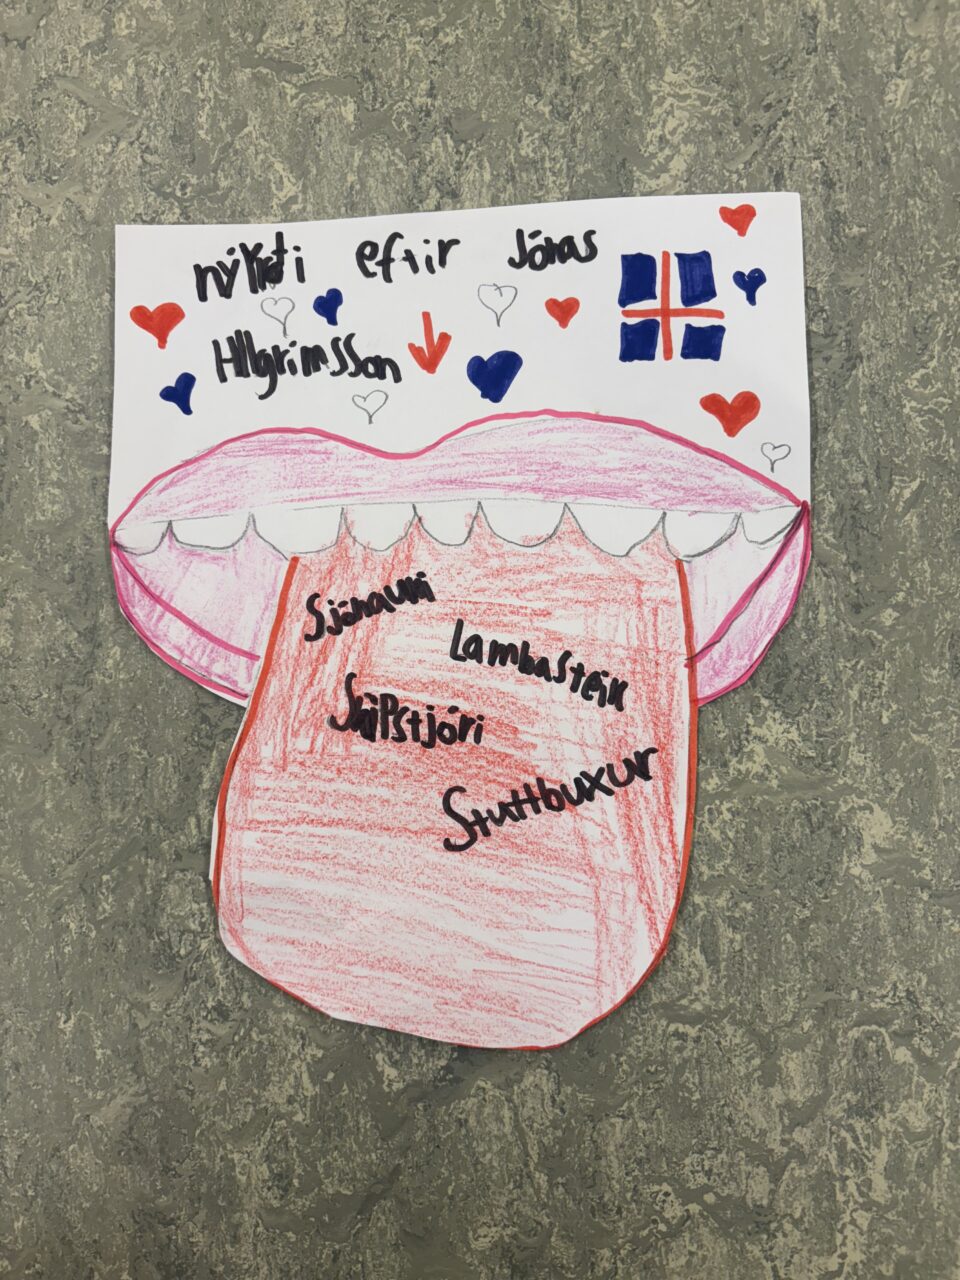 nýyrði eftir Jónas
Hllgrimsson
Sjónauki
Lambasteik
Skipstjóri
Stuttbuxur